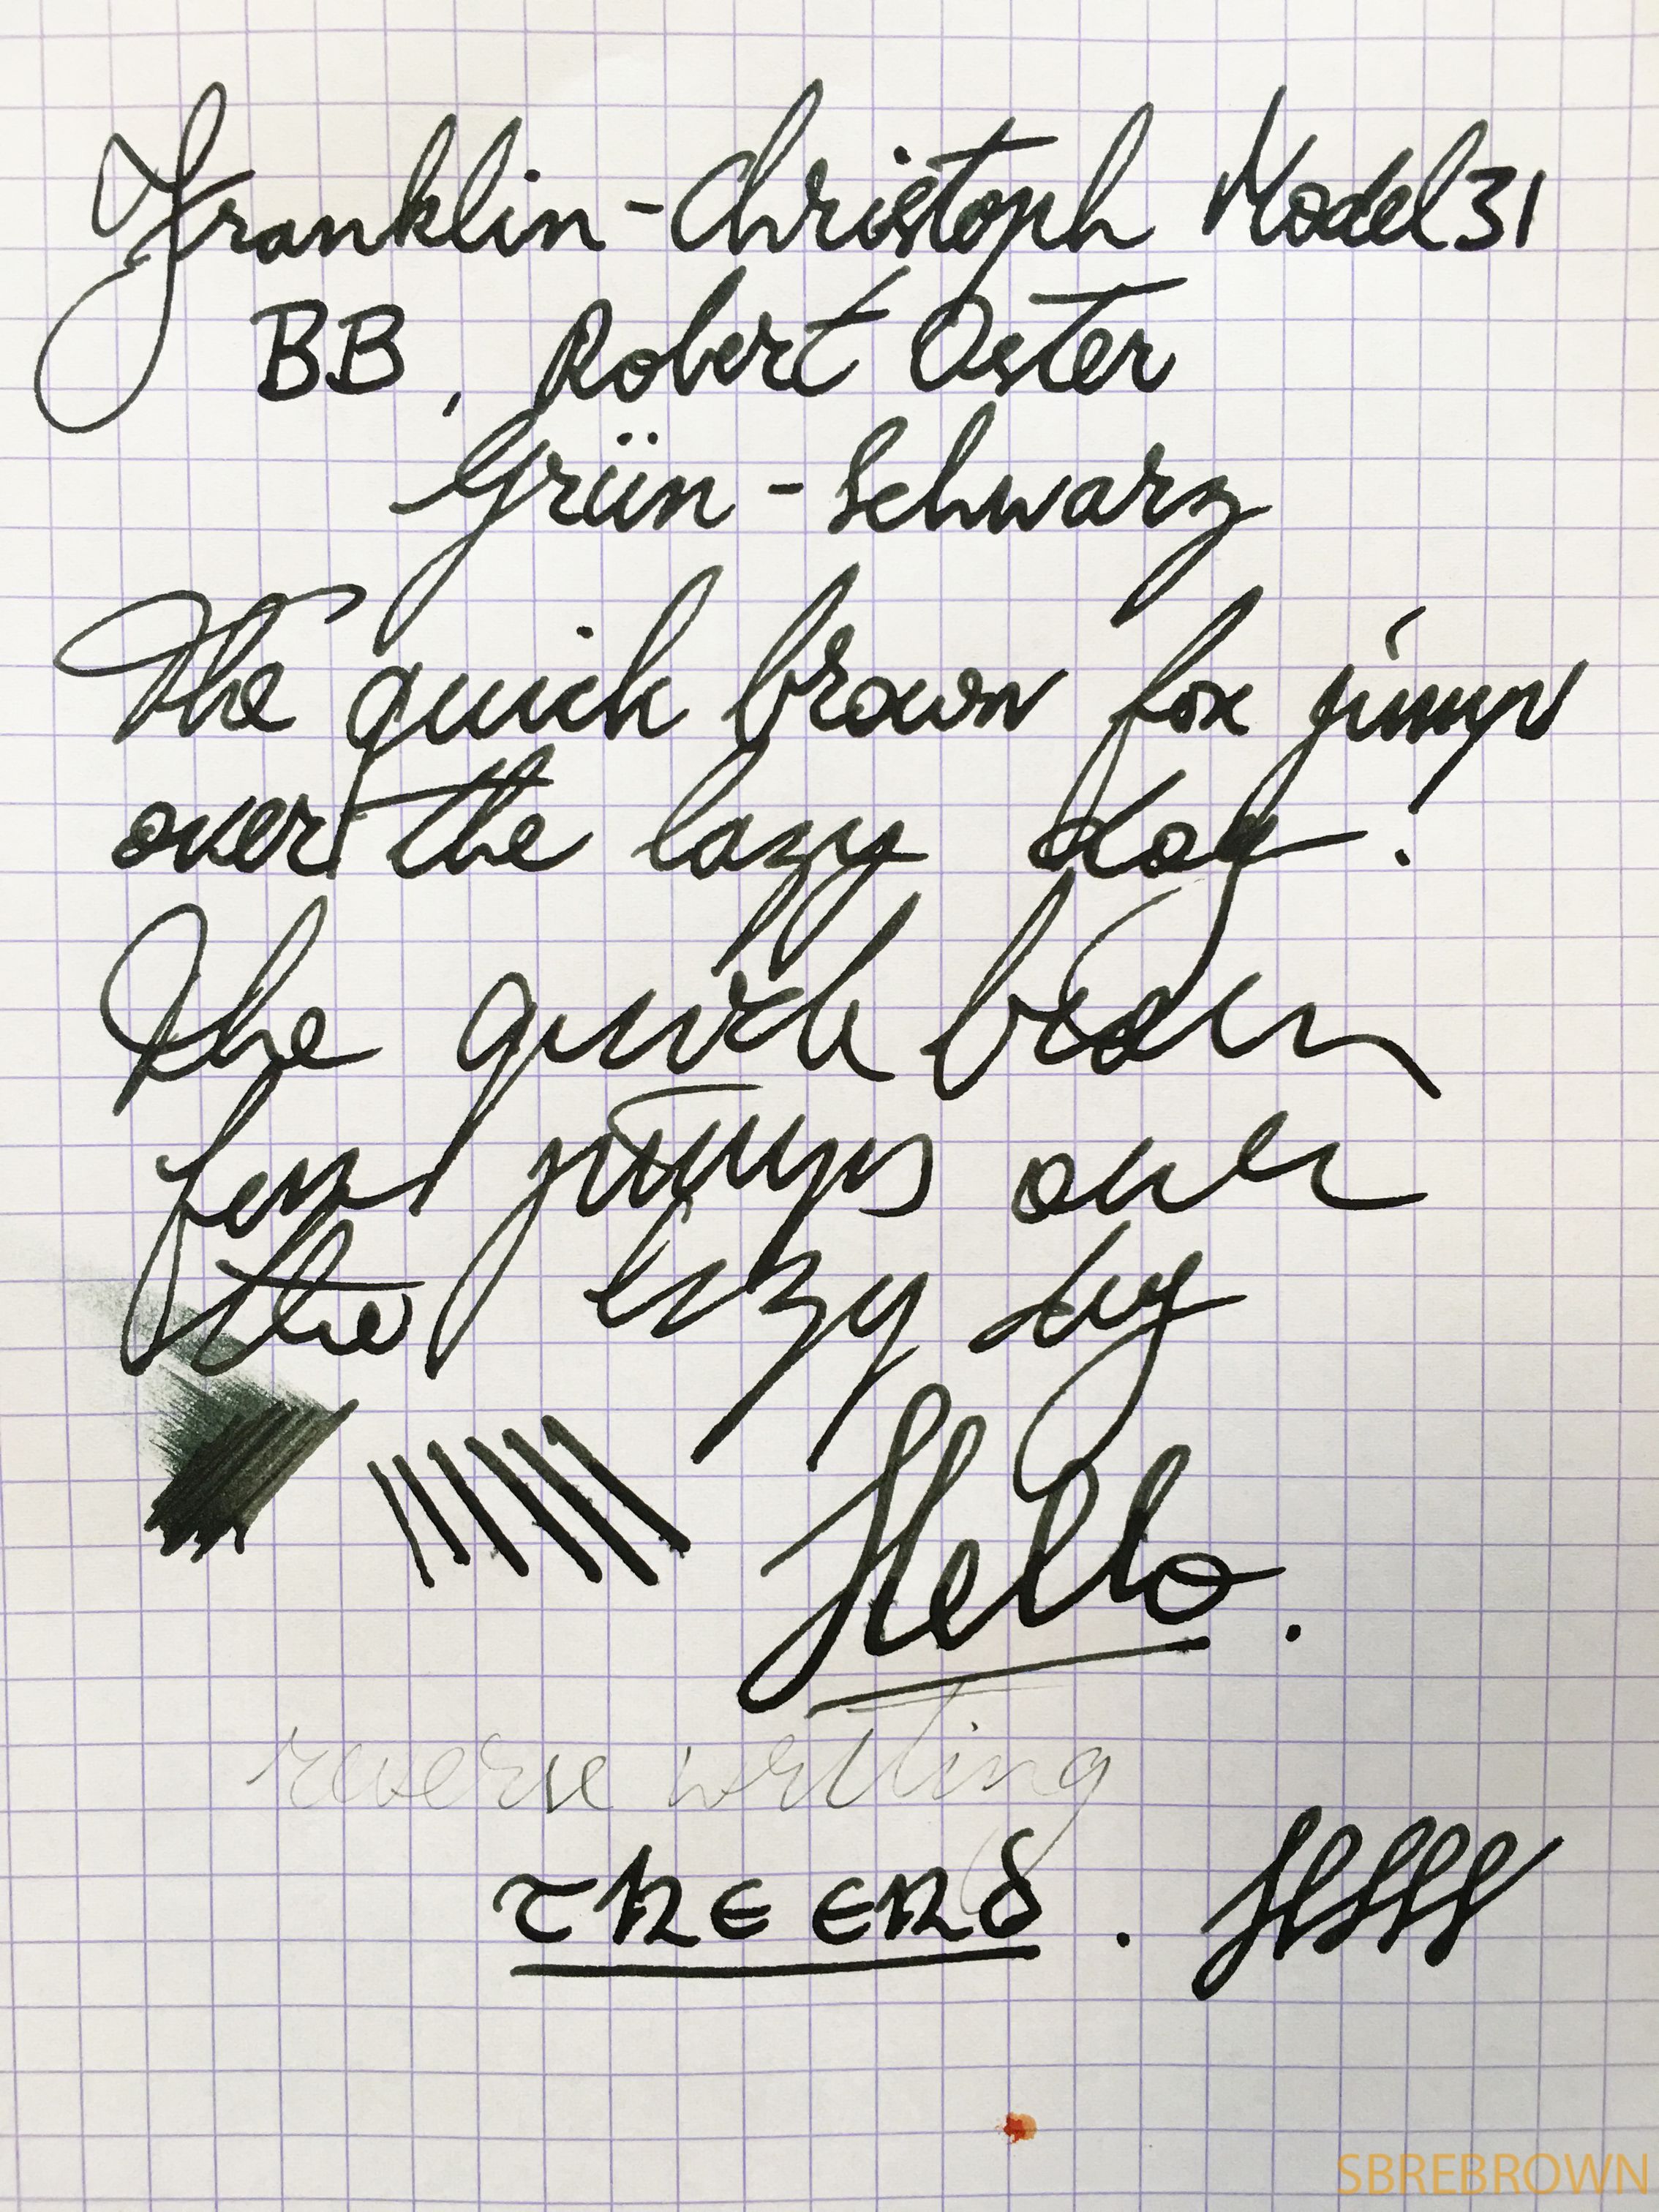 Franklin-Christoph Model 31
BB, Robert Oster
Grün-Schwarz
The quick brown fox jumps
over the lazy dog!
The quick brown
fox jumps over
the lazy dog
Hello.
reverse writing
THE END.
SBREBROWN